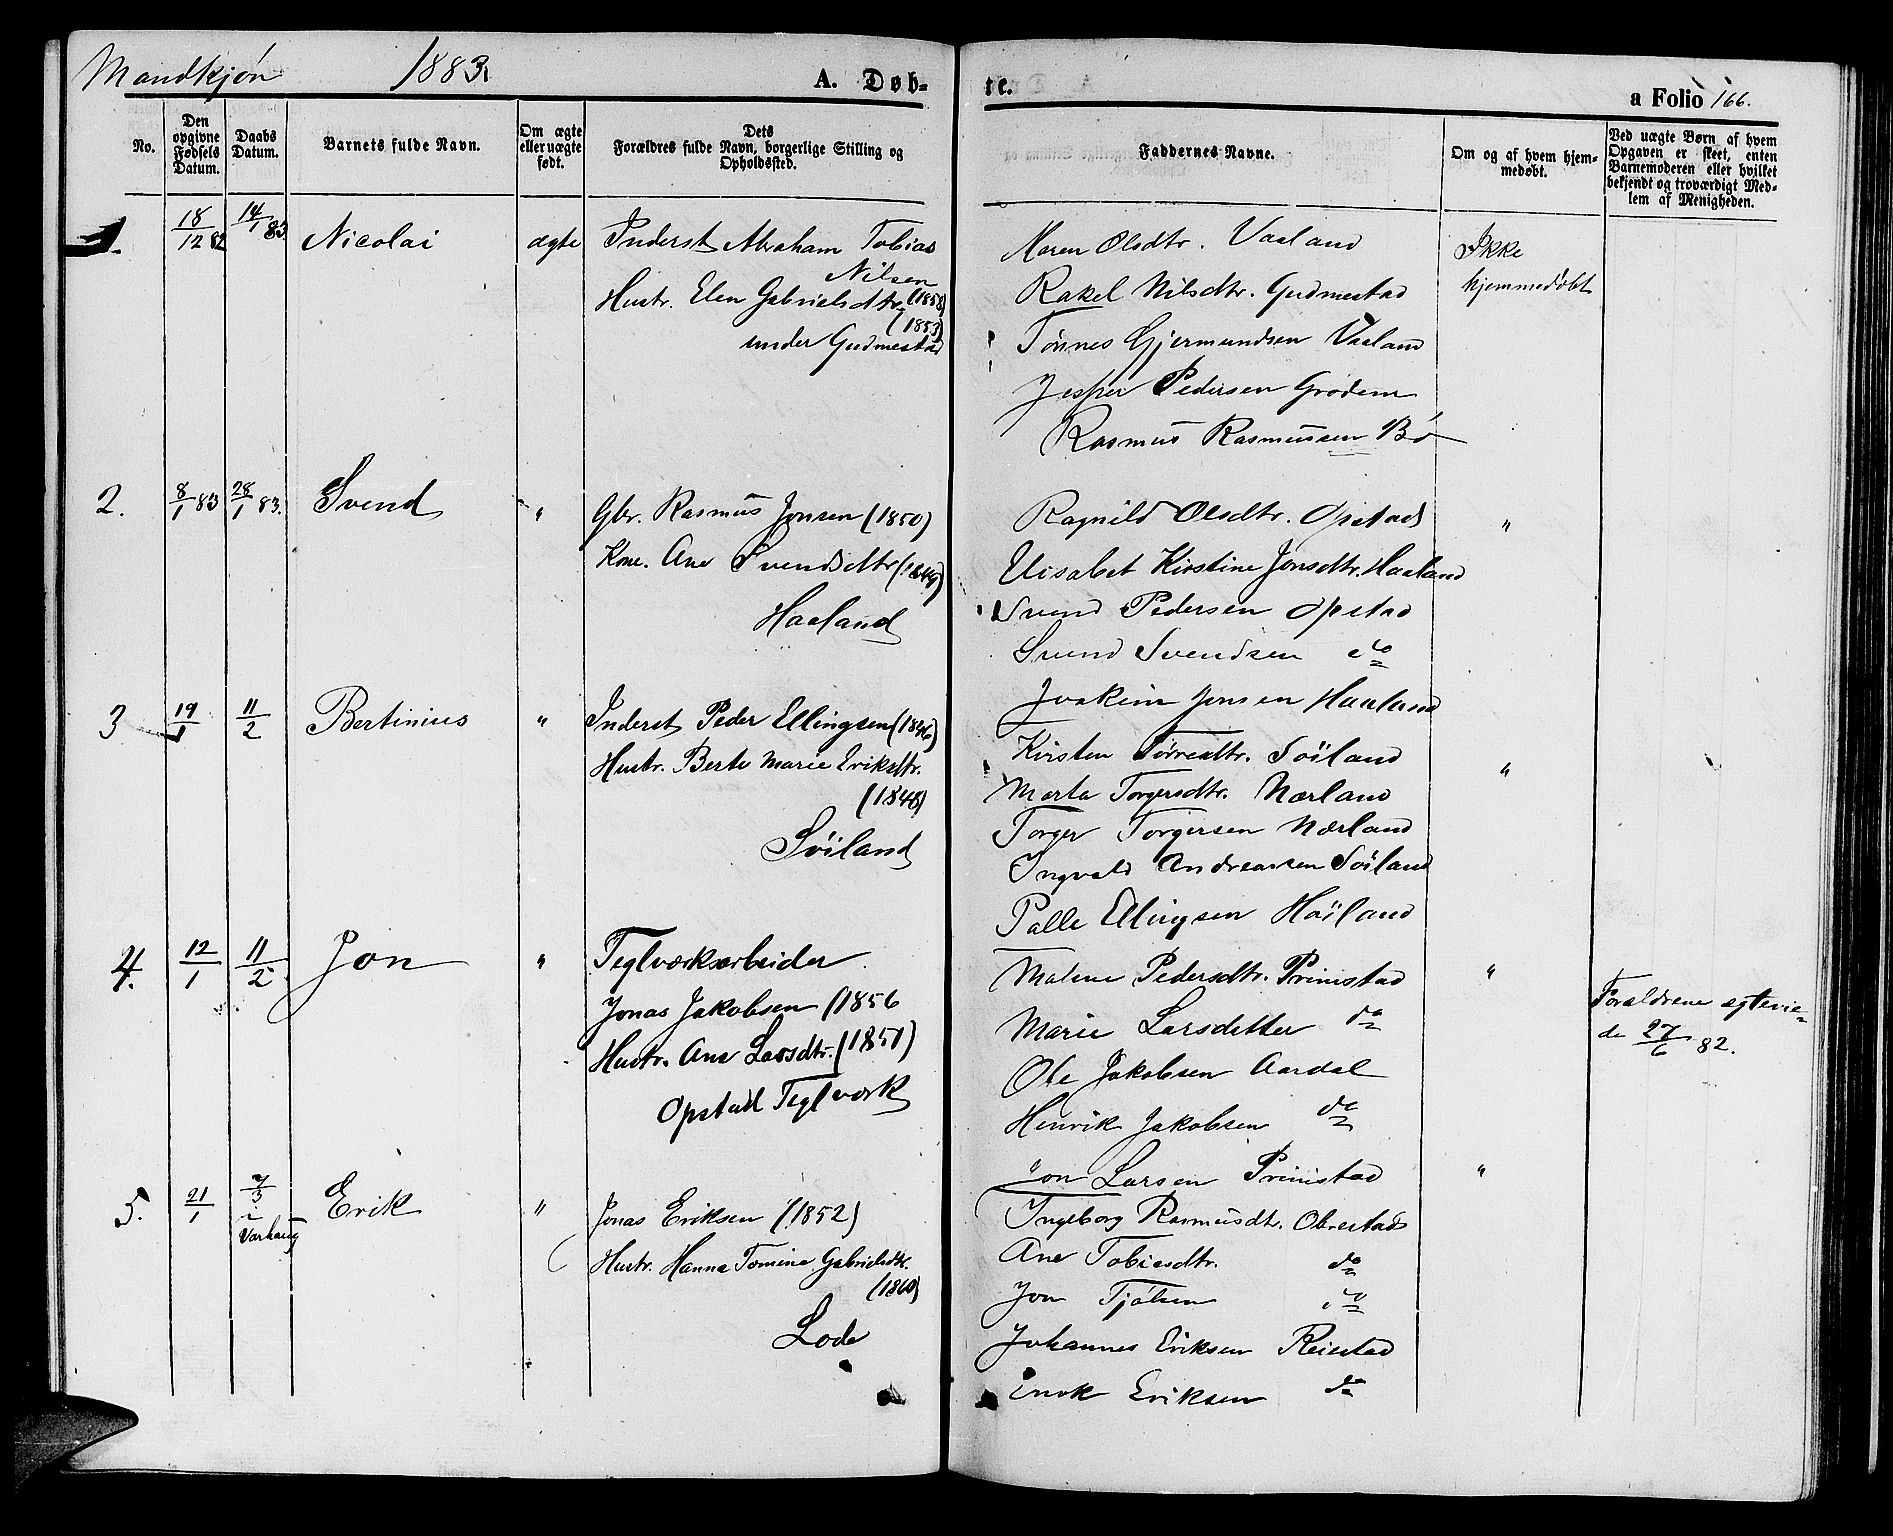 Mandkjøn 1883. A. Døb-
No.
Den opgivne Fødsels Datum.
Daabs Datum.
Barnets fulde Navn.
Om ægte eller uægte født.
Dets Forældres fulde Navn, borgerlige Stilling og Opholdssted.
1. 18/12 82 14/1 83 Nicolai ægte Inderst Abraham Tobias
Nilsen
Hustr. Elen Gabrielsdtr. (1858)
(1853)
under Gudmestad
2. 8/1 83 28/1 83. Svend " Gbr. Rasmus Jonsen (1850)
Kone. Ane Svendsdtr (1849)
Haaland
3 19/1 11/2 Bertinius " Inderst Peder Ellingsen (1846)
Hustr. Berte Marie Eriksdtr.
(1848)
Söiland
4. 12/1 11/2 Jon " Teglværksarbeider
Jonas Jakobsen (1856
Hustr. Ane Larsdtr. (1851)
Opstad Teglværk
5. 21/1 7/3 i Varhaug Erik " Jonas Eriksen (1852)
Hustr. Hanna Tomine Gabrielsdtr.
(1860)
Lode
te. a Folio 166.
Faddernes Navne.
Om og af hvem hjem-
medøbt.
Ved uægte Børn af hvem
Opgaven er skeet, enten
Barnemoderen eller hvilket
bekjendt og troværdigt Med-
lem af Menigheden.
Maren Olsdtr. Vaaland Ikke
Rakel Nilsdtr. Gudmestad hjemmedöbt
Tönnes Gjermundsen Vaaland
Jesper Pedersen Grödem
Rasmus Rasmussen Bö
Ragnild Olsdtr. Opstad "
Elisabet Kirstine Jonsdtr. Haaland
Svend Pedersen Opstad
Svend Svendsen do
Joakim Jonsen Haaland
Kirsten Torresdtr. Söiland "
Marta Torgersdtr. Nærland
Torger Torgersen Nærland
Ingvald Andreassen Söiland
Palle Ellingsen Höiland
Malene Pedersdtr. Primstad " Forældrene egtevie-
Marie Larsdatter do de 27/6 82.
Ole Jakobsen Aardal
Henrik Jakobsen do
Jon Larsen Primstad "
Ingeborg Rasmusdtr. Obrestad
Ane Tobiasdtr. do
Jon Tjölsen do
Johannes Eriksen Reiestad
Enok Eriksen do